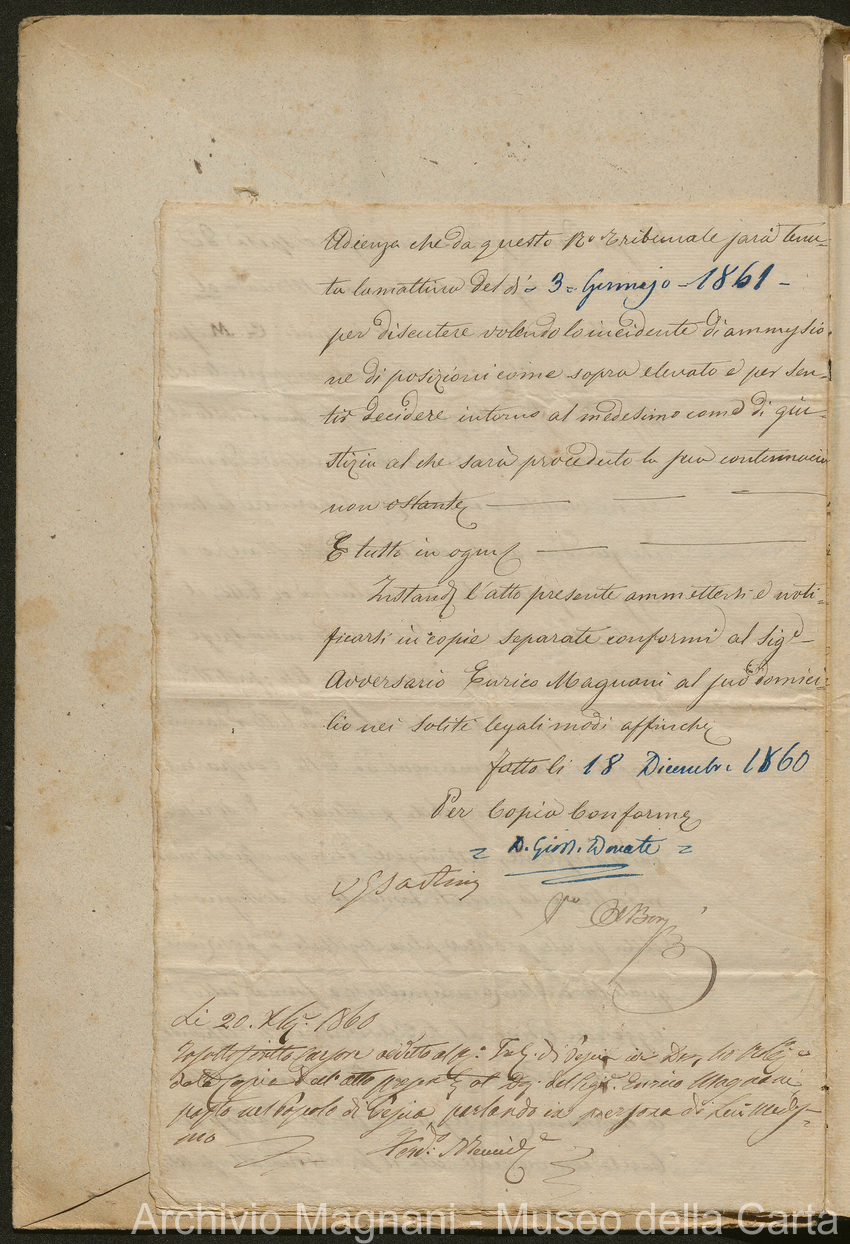 Udienza che da questo Ro. Tribunale sarà tenu-
ta la mattina del dì = 3 = Gennajo - 1861 -
per discutere volendo lo incidente di ammissio
ne di posizioni come sopra elevato e per sen-
tir decidere intorno al medesimo come di giu-
stizia al che sarà proceduto la sua contumacia
non ostante
E tutto in ogni
l'atto presente ammettersi e noti-
ficarsi in copie separate conformi al Sigre
Avversario Enrico Magnani al suo domici-
lio nei soliti legali modi affinche
Fatto li 18 Dicembre 1860
Per Copia Conforme
D. Donati
Li 20. Xbre. 1860
Io sottoscritto Cursore addetto al Trib. di Pescia
copia dell' atto al Enrico Magnani
posto nel Popolo di Pescia parlando in persona di Lui Medesi-
mo
Archivio Magnani - Museo della Carta